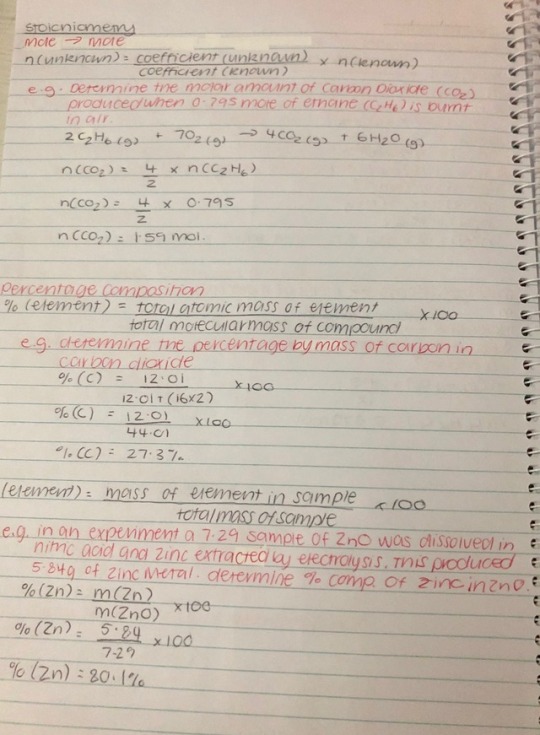 stoichiometry
mole → mole
n(unknown) = coefficient (unknown) / coefficient (known) × n(known)
e.g. Determine the molar amount of Carbon Dioxide (CO₂)
produced when 0.795 mole of ethane (C₂H₆) is burnt
in air.
2C₂H₆(g) + 7O₂(g) → 4CO₂(g) + 6H₂O(g)
n(CO₂) = 4/2 × n(C₂H₆)
n(CO₂) = 4/2 × 0.795
n(CO₂) = 1.59 mol.
percentage composition
% (element) = total atomic mass of element / total molecular mass of compound ×100
e.g. determine the percentage by mass of carbon in
carbon dioxide
%(C) = 12.01 / 12.01+(16×2) ×100
%(C) = 12.01 / 44.01 ×100
%(C) = 27.3%
(element) = mass of element in sample / total mass of sample ×100
e.g. in an experiment a 7.29 sample of ZnO was dissolved in
nitric acid and zinc extracted by electrolysis. This produced
5.84g of zinc metal. determine % comp. of zinc in ZnO.
%(Zn) = m(Zn) / m(ZnO) ×100
%(Zn) = 5.84 / 7.29 ×100
%(Zn) = 80.1%